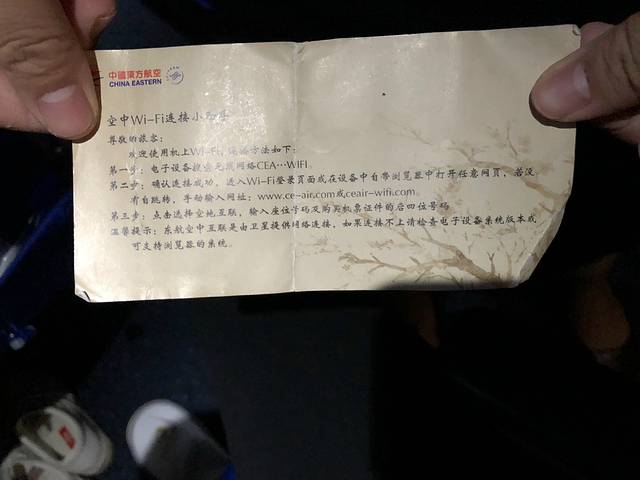 中國東方航空
CHINA EASTERN
空中Wi-Fi连接小
尊敬的旅客：
欢迎使用机上Wi-Fi，连接方法如下：
第一步：电子设备搜索无线网络CEA…WIFI
第二步：确认连接成功，进入Wi-Fi登录页面或在设备中自带浏览器中打开任意网页，若没
有自跳转，手动输入网址：www.ce-air.com或ceair-wifi.com
第三步：点击选择空地互联，输入座位号码及购买机票证件的后四位号码
温馨提示：东航空中互联是由卫星提供网络连接，如果连接不上请检查电子设备系统版本或
可支持浏览器的系统。